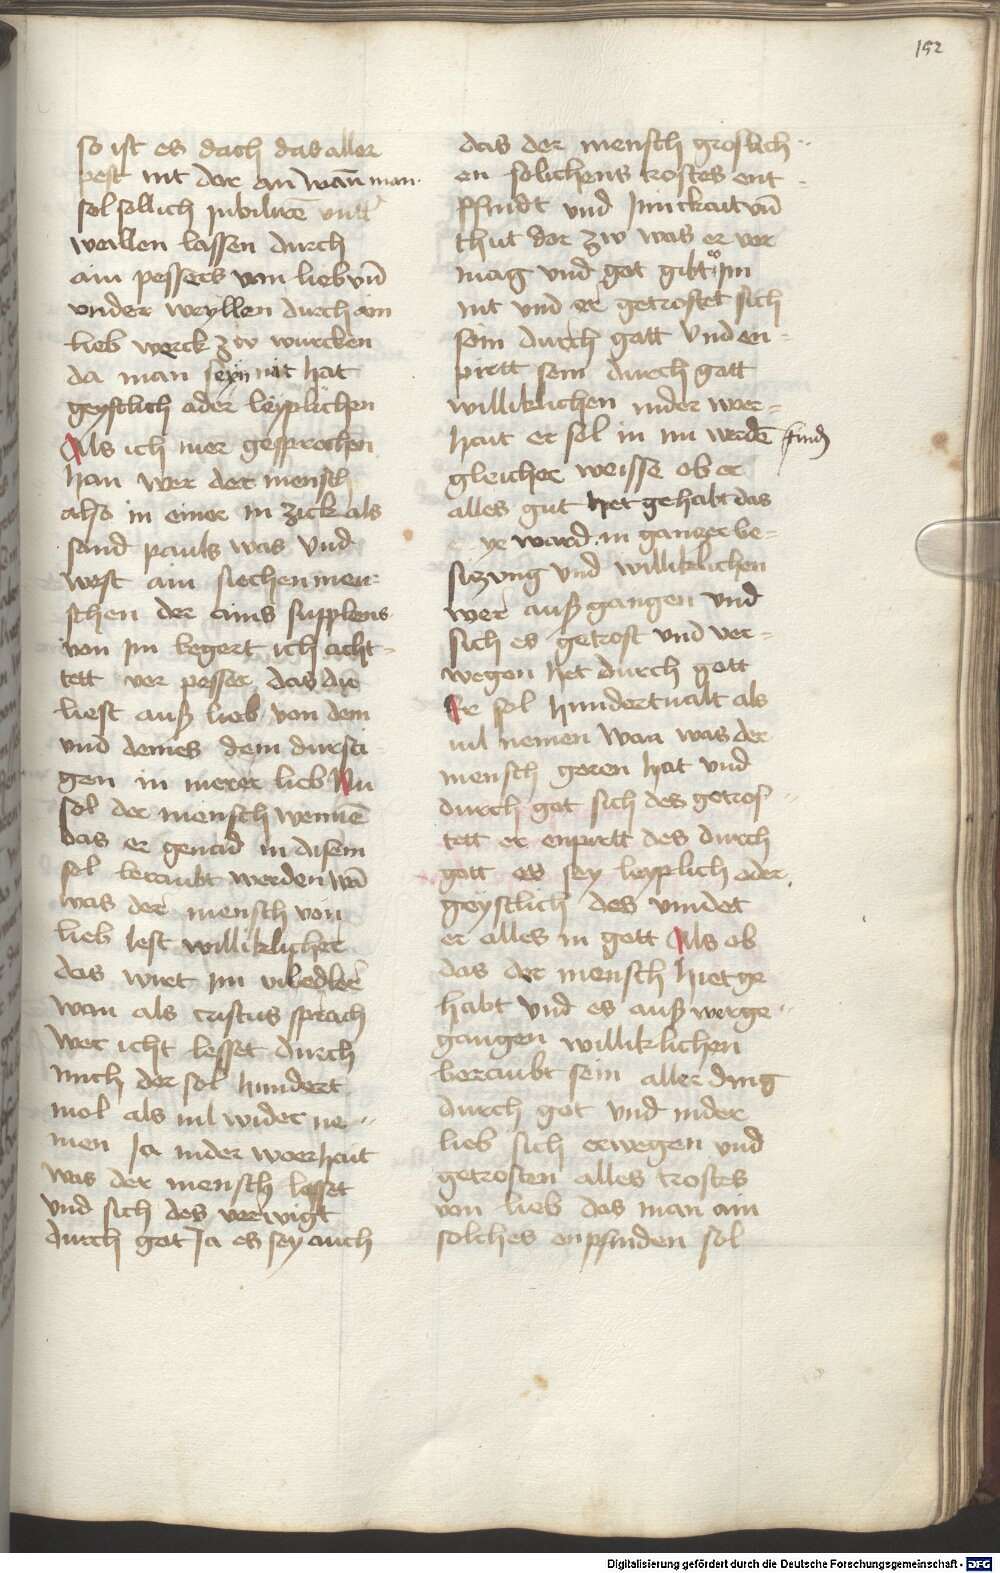 152
so ist es dach das aller
pest nit der an wan̄ man
sol sollich jubilirē vnd
wallen lassen durch
ain pessers von lieb vn̄
vnder weyllen durch ain
lieb werck zw wurcken
da man seyn nit hat
geystlich oder leyplichen
Als ich mer gesprochen
han wer der mensch
also in einer in zick als
sand pauls was vnd
west ain siechen men
schen der eins supplens
von jm begert ich acht
tett vor pesser das du
liest auß lieb von dem
vnd denies dem dursti
gen in merer lieb Nu
sol der mensch wennē
das er genad in disem
sol beraubt werden wā
was der mensch von
lieb lest williklicher
das wirt jm vil edler
wan als cristus sprach
wer icht lesset durch
mich der sol hundert
mol als vil wider ne
men Ja in der worhait
was der mensch lesset
vnd sich des verwigt
durch got Ja es sey auch
das der mensch groslich
en solichens trostes ent
pfindt vnd jnickait vn̄
thut dor zw was er ver
mag vnd got gibt jm
nit vnd er getrostet sich
sein durch gott vnd en
pirtt sein durch gott
williklichen in der wor
hait er sol in im werdē find
gleicher weisse ob er
alles gut het gehabt das
ye ward in ganzer be
siczung vnd williklichen
wer auß gangen vnd
sich es getrost vnd ver
wegen het durch gott
Er sol hundertualt als
vil nemen wan was der
mensch geren hat vnd
durch got sich des getros
tett er enpirtt des durch
gott es sey leyplich oder
geystlich des vindet
er alles in gott Als ob
das der mensch hiet ge
habt vnd es auß wer ge
gangen williklichen
beraubt sein aller ding
durch got vnd in der
lieb sich erwegen vnd
getrosten alles trostes
von lieb das man ain
solches enpfinden sol
Digitalisierung gefördert durch die Deutsche Forschungsgemeinschaft - DFG